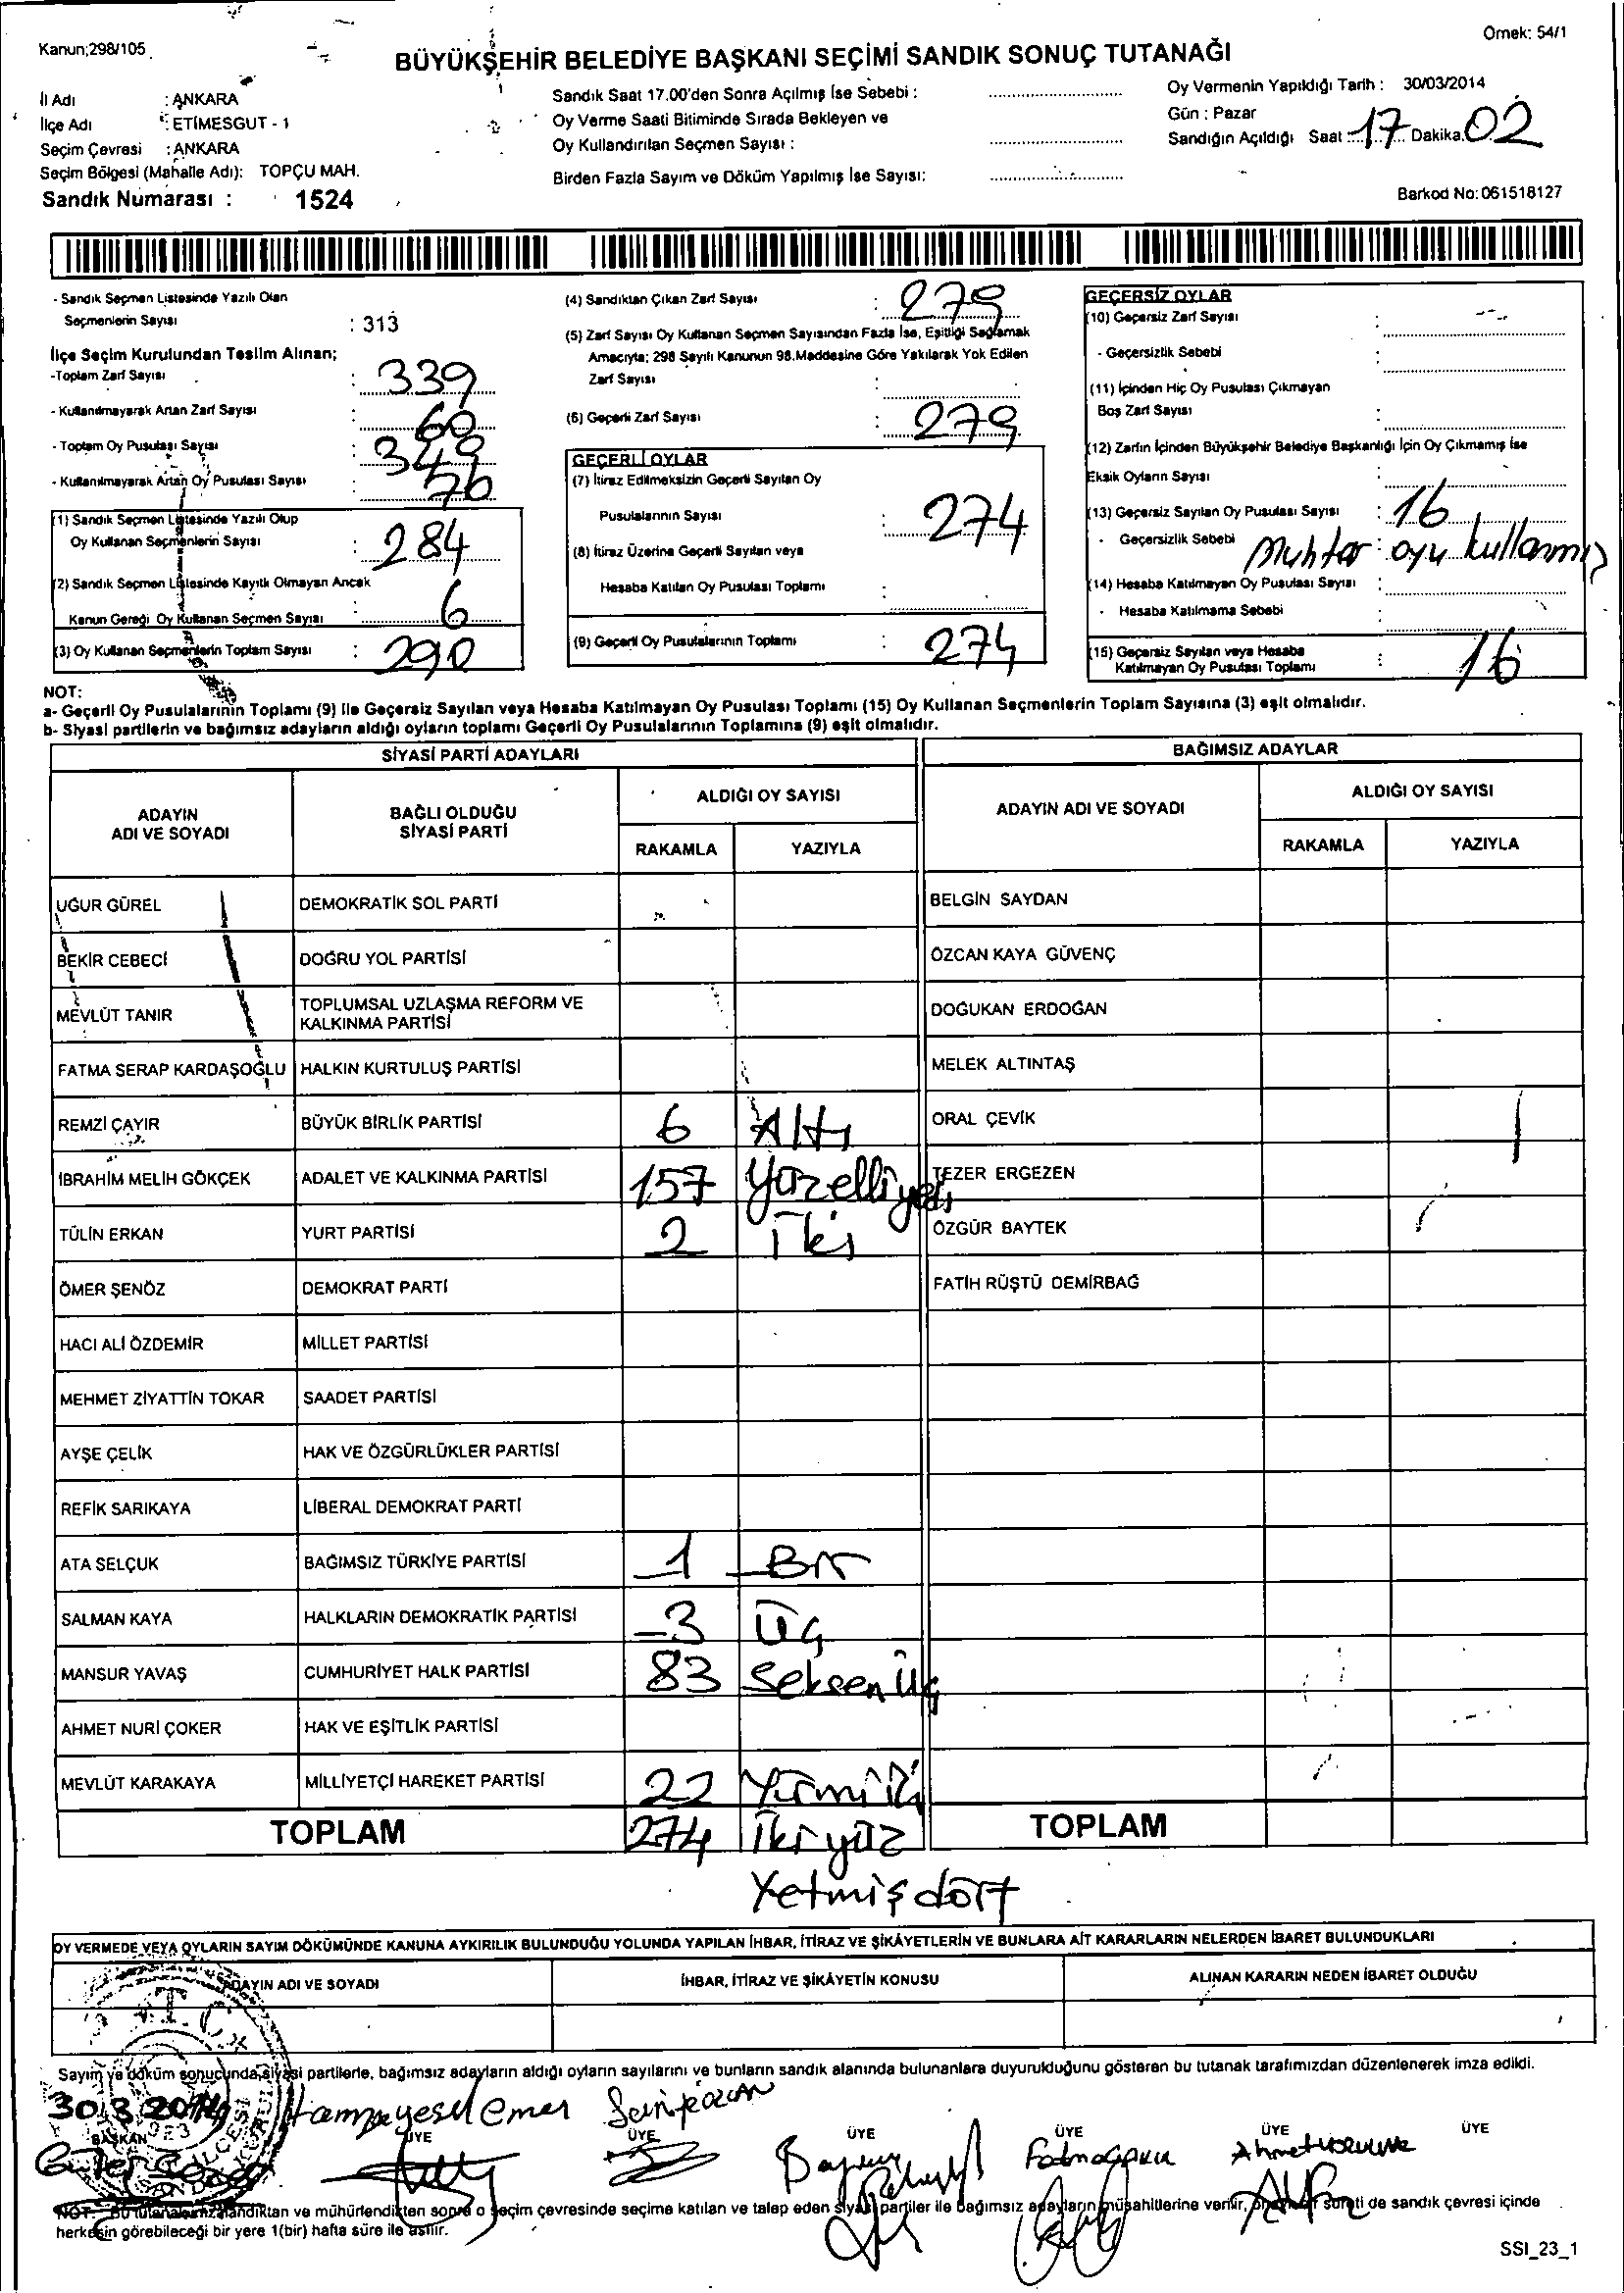 Kanun;298/105
Örnek: 54/1
BÜYÜKŞEHİR BELEDİYE BAŞKANI SEÇİMİ SANDIK SONUÇ TUTANAĞI
İl Adı : ANKARA
İlçe Adı : ETİMESGUT - 1
Seçim Çevresi : ANKARA
Seçim Bölgesi (Mahalle Adı): TOPÇU MAH.
Sandık Numarası : 1524
Sandık Saat 17.00'den Sonra Açılmış İse Sebebi :
Oy Verme Saati Bitiminde Sırada Bekleyen ve
Oy Kullandırılan Seçmen Sayısı :
Birden Fazla Sayım ve Döküm Yapılmış İse Sayısı:
Oy Vermenin Yapıldığı Tarih : 30/03/2014
Gün : Pazar
Sandığın Açıldığı Saat 17 Dakika 02
Barkod No: 061518127
- Sandık Seçmen Listesinde Yazılı Olan
Seçmenlerin Sayısı : 313
İlçe Seçim Kurulundan Teslim Alınan;
-Toplam Zarf Sayısı : 339
- Kullanılmayarak Artan Zarf Sayısı : 60
- Toplam Oy Pusulası Sayısı : 349
- Kullanılmayarak Artan Oy Pusulası Sayısı 76
(1) Sandık Seçmen Listesinde Yazılı Olup
Oy Kullanan Seçmenlerin Sayısı : 284
(2) Sandık Seçmen Listesinde Kayıtlı Olmayan Ancak
Kanun Gereği Oy Kullanan Seçmen Sayısı : 6
(3) Oy Kullanan Seçmenlerin Toplam Sayısı : 290
(4) Sandıktan Çıkan Zarf Sayısı : 279
(5) Zarf Sayısı Oy Kullanan Seçmen Sayısından Fazla İse, Eşitliği Sağlamak
Amacıyla; 298 Sayılı Kanunun 98.Maddesine Göre Yakılarak Yok Edilen
Zarf Sayısı :
(6) Geçerli Zarf Sayısı : 279
GEÇERLİ OYLAR
(7) İtiraz Edilmeksizin Geçerli Sayılan Oy
Pusulalarının Sayısı : 274
(8) İtiraz Üzerine Geçerli Sayılan veya
Hesaba Katılan Oy Pusulası Toplamı :
(9) Geçerli Oy Pusulalarının Toplamı : 274
GEÇERSİZ OYLAR
(10) Geçersiz Zarf Sayısı :
- Geçersizlik Sebebi :
(11) İçinden Hiç Oy Pusulası Çıkmayan
Boş Zarf Sayısı :
(12) Zarfın İçinden Büyükşehir Belediye Başkanlığı İçin Oy Çıkmamış ise
Eksik Oyların Sayısı :
(13) Geçersiz Sayılan Oy Pusulası Sayısı : 16
- Geçersizlik Sebebi : Muhtar oyu kullanmış
(14) Hesaba Katılmayan Oy Pusulası Sayısı :
- Hesaba Katılmama Sebebi :
(15) Geçersiz Sayılan veya Hesaba
Katılmayan Oy Pusulası Toplamı : 16
NOT:
a- Geçerli Oy Pusulalarının Toplamı (9) ile Geçersiz Sayılan veya Hesaba Katılmayan Oy Pusulası Toplamı (15) Oy Kullanan Seçmenlerin Toplam Sayısına (3) eşit olmalıdır.
b- Siyasi partilerin ve bağımsız adayların aldığı oyların toplamı Geçerli Oy Pusulalarının Toplamına (9) eşit olmalıdır.
SİYASİ PARTİ ADAYLARI
ADAYIN ADI VE SOYADI
BAĞLI OLDUĞU SİYASİ PARTİ
ALDIĞI OY SAYISI
RAKAMLA YAZIYLA
UĞUR GÜREL DEMOKRATİK SOL PARTİ
BEKİR CEBECİ DOĞRU YOL PARTİSİ
MEVLÜT TANIR TOPLUMSAL UZLAŞMA REFORM VE KALKINMA PARTİSİ
FATMA SERAP KARDAŞOĞLU HALKIN KURTULUŞ PARTİSİ
REMZİ ÇAYIR BÜYÜK BİRLİK PARTİSİ 6 Altı
İBRAHİM MELİH GÖKÇEK ADALET VE KALKINMA PARTİSİ 157 Yüzelliyedi
TÜLİN ERKAN YURT PARTİSİ 2 İki
ÖMER ŞENÖZ DEMOKRAT PARTİ
HACI ALİ ÖZDEMİR MİLLET PARTİSİ
MEHMET ZİYATTİN TOKAR SAADET PARTİSİ
AYŞE ÇELİK HAK VE ÖZGÜRLÜKLER PARTİSİ
REFİK SARIKAYA LİBERAL DEMOKRAT PARTİ
ATA SELÇUK BAĞIMSIZ TÜRKİYE PARTİSİ 1 Bir
SALMAN KAYA HALKLARIN DEMOKRATİK PARTİSİ 3 Üç
MANSUR YAVAŞ CUMHURİYET HALK PARTİSİ 83 Seksen Üç
AHMET NURİ ÇOKER HAK VE EŞİTLİK PARTİSİ
MEVLÜT KARAKAYA MİLLİYETÇİ HAREKET PARTİSİ 22 Yirmi iki
TOPLAM 274 İki yüz
Yetmiş dört
BAĞIMSIZ ADAYLAR
ADAYIN ADI VE SOYADI
ALDIĞI OY SAYISI
RAKAMLA YAZIYLA
BELGİN SAYDAN
ÖZCAN KAYA GÜVENÇ
DOĞUKAN ERDOĞAN
MELEK ALTINTAŞ
ORAL ÇEVİK
TEZER ERGEZEN
ÖZGÜR BAYTEK
FATİH RÜŞTÜ DEMİRBAĞ
TOPLAM
OY VERMEDE VEYA OYLARIN SAYIM DÖKÜMÜNDE KANUNA AYKIRILIK BULUNDUĞU YOLUNDA YAPILAN İHBAR, İTİRAZ VE ŞİKÂYETLERİN VE BUNLARA AİT KARARLARIN NELERDEN İBARET BULUNDUKLARI
ADAYIN ADI VE SOYADI İHBAR, İTİRAZ VE ŞİKÂYETİN KONUSU ALINAN KARARIN NEDEN İBARET OLDUĞU
Sayım ve döküm sonucunda,siyasi partilerle, bağımsız adayların aldığı oyların sayılarını ve bunların sandık alanında bulunanlara duyurulduğunu gösteren bu tutanak tarafımızdan düzenlenerek imza edildi.
30.3.2014
BAŞKAN ÜYE ÜYE ÜYE ÜYE ÜYE ÜYE
NOT: Bu tutanak imzalandıktan ve mühürlendikten sonra o seçim çevresinde seçime katılan ve talep eden siyasi partiler ile bağımsız adayların müşahitlerine verilir, bir sureti de sandık çevresi içinde
herkesin görebileceği bir yere 1(bir) hafta süre ile asılır.
SSI_23_1